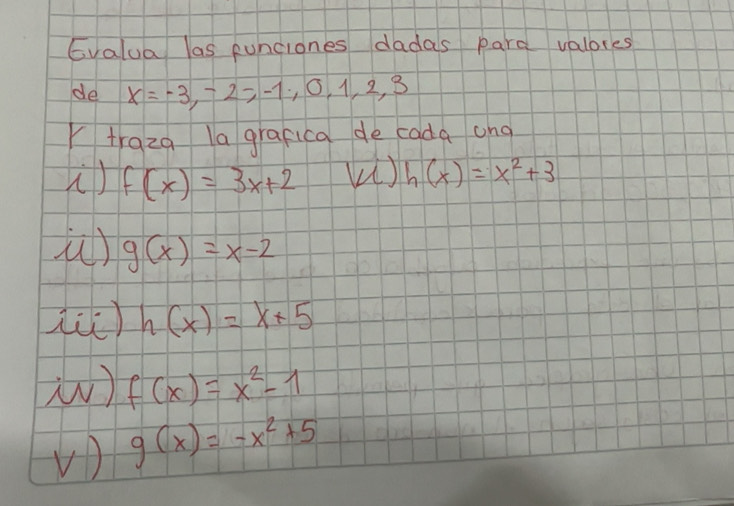 Evalua las funciones dadas para valores
de x = -3, -2, -1, 0, 1, 2, 3
Y traza la grafica de cada una
i) f(x) = 3x+2 vi) h(x) = x²+3
ii) g(x) = x-2
iii) h(x) = x+5
iv) f(x) = x²-1
v) g(x) = -x²+5